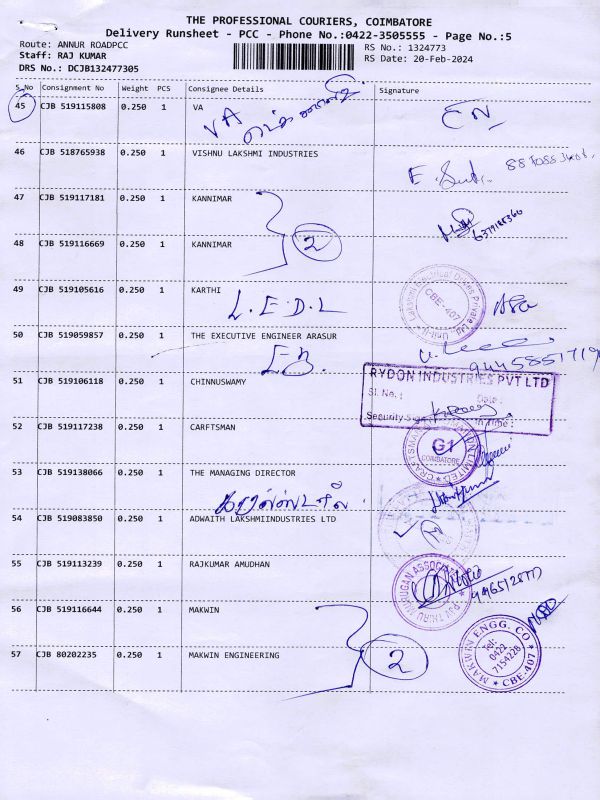 THE PROFESSIONAL COURIERS, COIMBATORE
Delivery Runsheet - PCC - Phone No.:0422-3505555 - Page No.:5
Route: ANNUR ROADPCC
RS No.: 1324773
Staff: RAJ KUMAR
RS Date: 20-Feb-2024
DRS No.: DCJB132477305
S.No Consignment No Weight PCS Consignee Details Signature
45 CJB 519115808 0.250 1 VA
VA
46 CJB 518765938 0.250 1 VISHNU LAKSHMI INDUSTRIES
47 CJB 519117181 0.250 1 KANNIMAR
2
48 CJB 519116669 0.250 1 KANNIMAR
49 CJB 519105616 0.250 1 KARTHI
L.E.D.L
CBE-407
50 CJB 519059857 0.250 1 THE EXECUTIVE ENGINEER ARASUR
EB
51 CJB 519106118 0.250 1 CHINNUSWAMY
RYDON INDUSTRIES PVT LTD
Sl. No.: Date:
52 CJB 519117238 0.250 1 CARFTSMAN
G1
COIMBATORE
53 CJB 519138066 0.250 1 THE MANAGING DIRECTOR
54 CJB 519083850 0.250 1 ADWAITH LAKSHMIINDUSTRIES LTD
55 CJB 519113239 0.250 1 RAJKUMAR AMUDHAN
56 CJB 519116644 0.250 1 MAKWIN
2
57 CJB 80202235 0.250 1 MAKWIN ENGINEERING
MAKWIN ENGG. CO
Tel:
0422
7154228
CBE-407